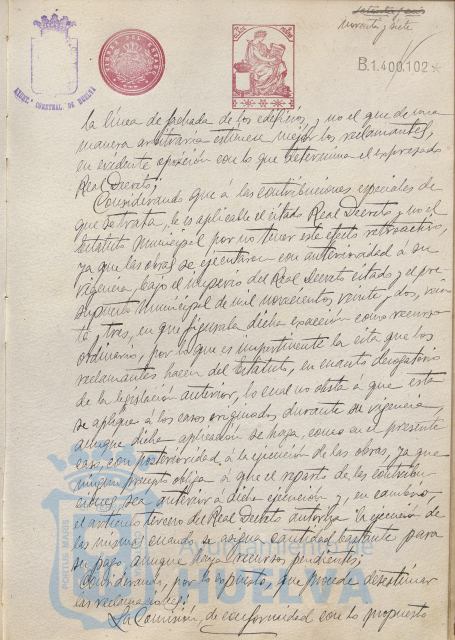 noventa y siete
B.1.400.102*
TIMBRE DEL ESTADO
ARCHIVO MUNICIPAL DE HUELVA
la línea de fachada de los edificios, y no el que de una
manera arbitraria estimese mejor los reclamantes,
en evidente oposición con lo que determina el expresado
Real Decreto;
Considerando que á las contribuciones especiales de
que se trata, le es aplicable el citado Real Decreto y no el
Estatuto Municipal por no tener este efecto retroactivo,
ya que las obras se ejecutaron con anterioridad á su
vigencia, bajo el imperio del Real Decreto citado y el pre-
supuesto Municipal de mil novecientos veinte y dos, vein-
te y tres, en que figuraba dicha exacción como recurso
ordinario, por lo que es impertinente la cita que los
reclamantes hacen del Estatuto, en cuanto derogatorio
de la legislación anterior, lo cual no obsta á que esta
se aplique á los casos originados durante su vigencia,
aunque dicha aplicación se haga, como en el presente
caso, con posterioridad á la ejecución de las obras, ya que
ningun precepto obliga á que el reparto de las contribu-
ciones sea anterior á dicha ejecución y, en cambio,
el artículo tercero del Real Decreto autoriza la ejecución de
las mismas cuando se asegure cantidad bastante para
su pago, aunque haya recursos pendientes;
Considerando, por lo expuesto, que procede desestimar
las reclamaciones;
La Comisión, de conformidad con lo propuesto
PORTUS MARIS
Ayuntamiento de
HUELVA